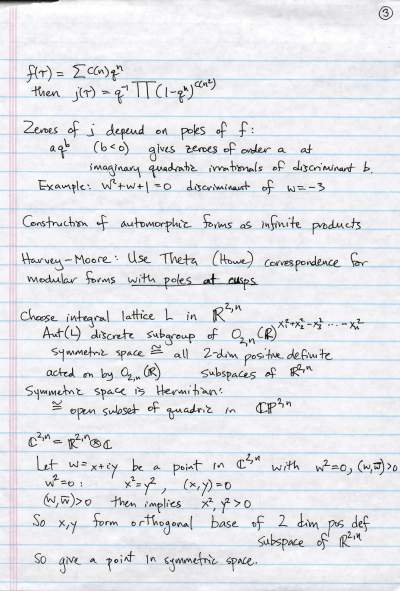 ③
f(τ) = Σ c(n) qⁿ
then j(τ) = q⁻¹ ∏ (1-qⁿ)^c(n²)
Zeroes of j depend on poles of f:
aq^b (b<0) gives zeroes of order a at
imaginary quadratic irrationals of discriminant b.
Example: w²+w+1=0 discriminant of w = -3
Construction of automorphic forms as infinite products
Harvey-Moore: Use Theta (Howe) correspondence for
modular forms with poles at cusps
Choose integral lattice L in ℝ^2,n
Aut(L) discrete subgroup of O_2,n(ℝ) x₁²+x₂²-x₃² ... -xₙ²
symmetric space ≅ all 2-dim positive definite
acted on by O_2,n(ℝ) subspaces of ℝ^2,n
Symmetric space is Hermitian:
≅ open subset of quadric in ℂℙ^2,n
ℂ^2,n = ℝ^2,n ⊗ ℂ
Let w = x+iy be a point in ℂ^2,n with w²=0, (w,w̄)>0
w²=0: x²=y², (x,y)=0
(w,w̄)>0 then implies x², y²>0
So x,y form orthogonal base of 2 dim pos def
subspace of ℝ^2,n
So give a point in symmetric space.